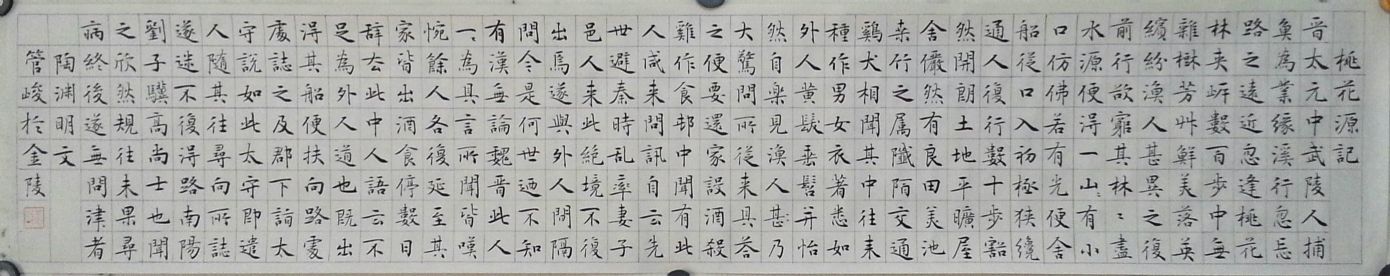 桃花源記
晋太元中武陵人捕
魚為業緣溪行忽忘
路之遠近忽逢桃花
林夾岸數百步中無
雜樹芳艸鮮美落英
繽紛漁人甚異之復
前行欲窮其林〻盡
水源便得一山〻有小
口仿佛若有光便舍
船從口入初極狹纔
通人復行數十步豁
然開朗土地平曠屋
舍儼然有良田美池
桒竹之属阡陌交通
鷄犬相聞其中往来
種作男女衣著悉如
外人黄髮垂髫并怡
然自樂見漁人甚乃
大驚問所從来具答
之便要還家設酒殺
雞作食邨中聞有此
人咸来問訊自云先
世避秦時乱率妻子
邑人来此絶境不復
出焉遂與外人間隔
問今是何世迺不知
有漢無論魏晋此人
一一為具言所聞皆嘆
惋餘人各復延至其
家皆出酒食停數日
辞去此中人語云不
足為外人道也既出
得其船便扶向路處
處誌之及郡下詣太
守説如此太守即遣
人隨其往尋向所誌
遂迷不復得路南陽
劉子驥高尚士也聞
之欣然規往未果尋
病終後遂無問津者
陶渊明文
管峻於金陵